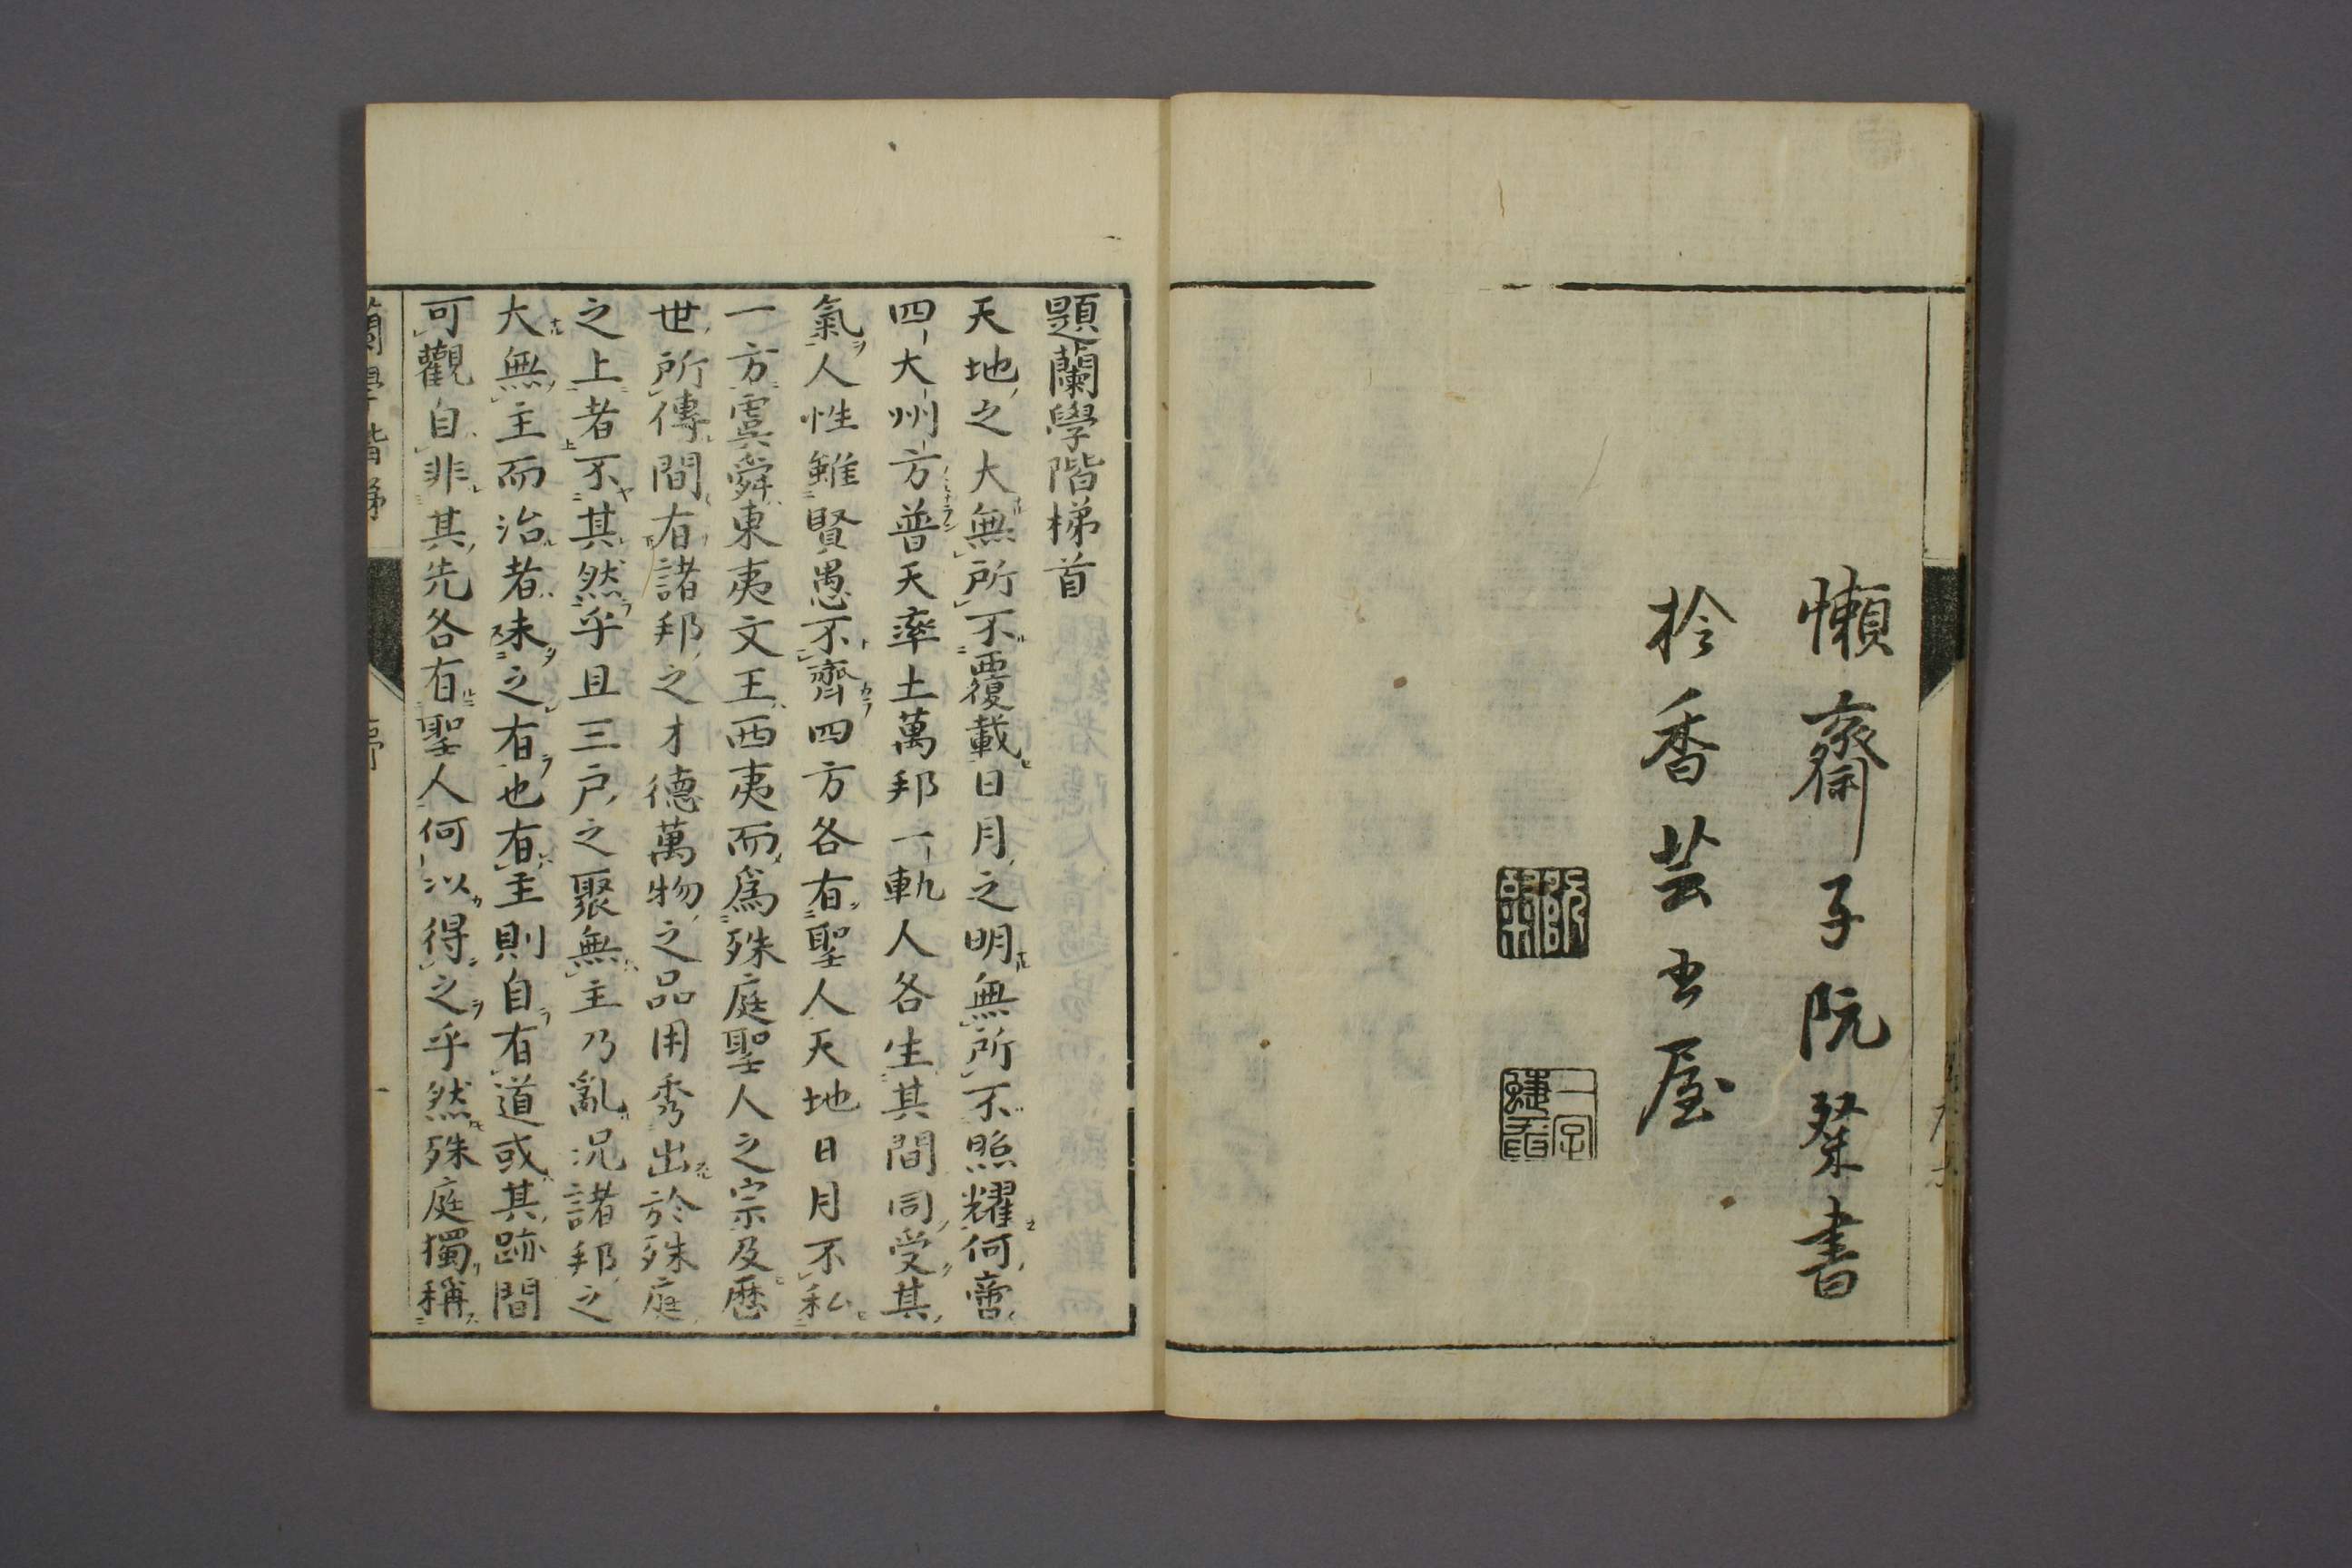 懶齋子阮粲書
於香芸書屋
阮粲
題蘭學階梯首
天地之大無所不覆載日月之明無所不照耀何啻
四大州方普天率土萬邦一軌人各生其間同受其
氣人性雖賢愚不齊四方各有聖人天地日月不私
一方虞舜東夷文王西夷而爲殊庭聖人之宗及歷
世所傳間有諸邦之才德萬物之品用秀出於殊庭
之上者不其然乎且三戶之聚無主乃亂況諸邦之
大無主而治者未之有也有主則自有道或其跡間
可觀自非其先各有聖人何以得之乎然殊庭獨稱
蘭學階梯 序 一